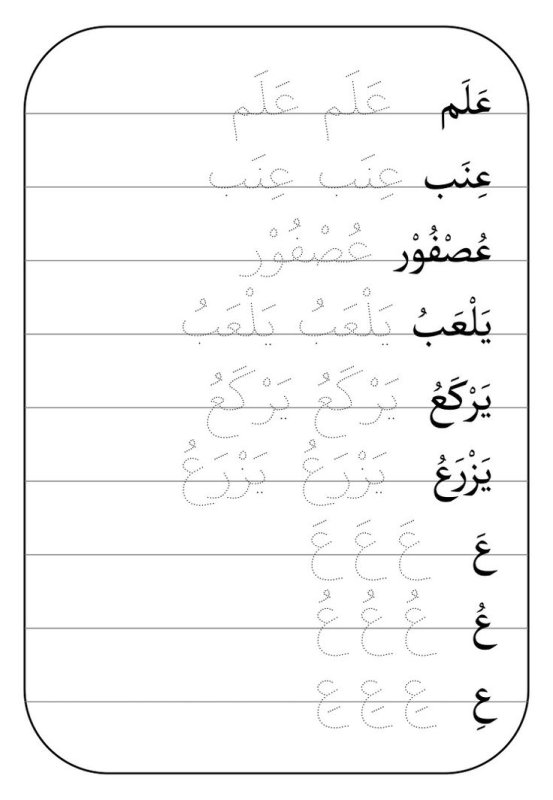 عَلَم عَلَم عَلَم
عِنَب عِنَب عِنَب
عُصْفُوْر عُصْفُوْر
يَلْعَبُ يَلْعَبُ يَلْعَبُ
يَرْكَعُ يَرْكَعُ يَرْكَعُ
يَزْرَعُ يَزْرَعُ يَزْرَعُ
عَ عَ عَ عَ
عُ عُ عُ عُ
عِ عِ عِ عِ